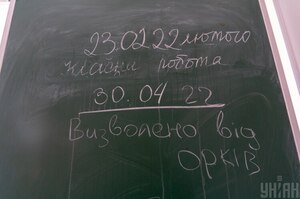 23.02.22 лютого
класна робота
30.04 22
Визволено від
орків
УНІАН